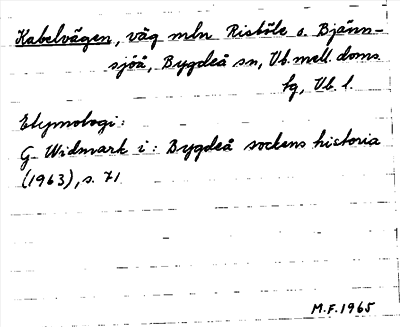 Kabelvägen, väg mln Ristöle o. Bjänn-
sjöå, Bygdeå sn, Vb. mell. doms
hg, Vb. l.
Etymologi:
G. Widmark i: Bygdeå sockens historia
(1963), s. 71
M.F. 1965